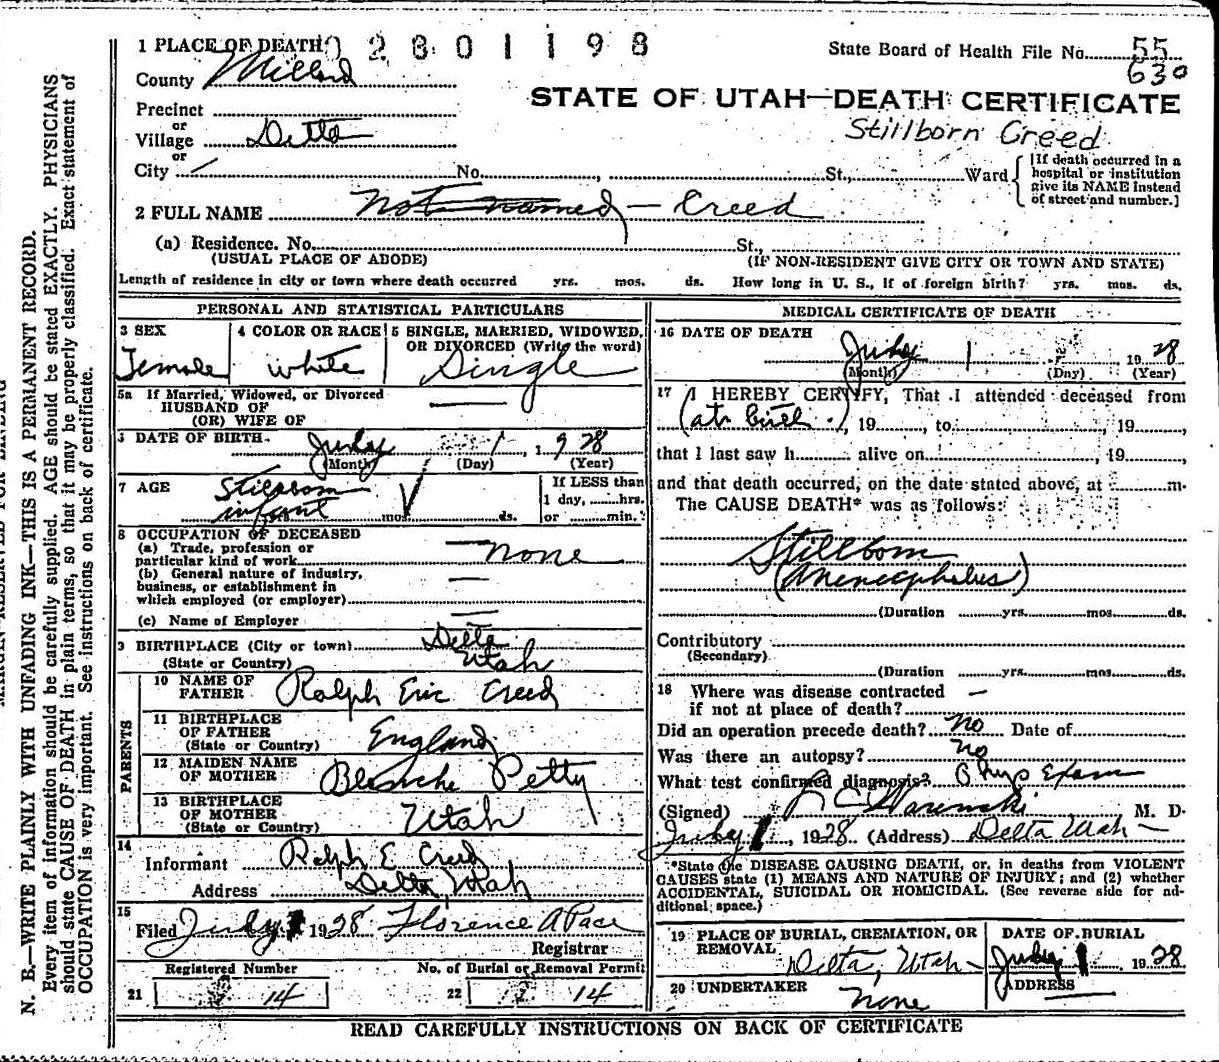 1 PLACE OF DEATH 02801198
State Board of Health File No. 55
630
County Millard
STATE OF UTAH—DEATH CERTIFICATE
Stillborn Creed
Precinct
or
Village Delta
or
City No. , St., Ward {[If death occurred in a hospital or institution give its NAME instead of street and number.]
2 FULL NAME Not named — Creed
(a) Residence. No. St.,
(USUAL PLACE OF ABODE) (IF NON-RESIDENT GIVE CITY OR TOWN AND STATE)
Length of residence in city or town where death occurred yrs. mos. ds. How long in U. S., if of foreign birth? yrs. mos. ds.
PERSONAL AND STATISTICAL PARTICULARS
3 SEX
Female
4 COLOR OR RACE
white
5 SINGLE, MARRIED, WIDOWED, OR DIVORCED (Write the word)
Single
5a If Married, Widowed, or Divorced
HUSBAND OF
(OR) WIFE OF
DATE OF BIRTH
July 1, 1928
(Month) (Day) (Year)
7 AGE Stillborn
infant mos. ds.
If LESS than
1 day, hrs.
or min.
8 OCCUPATION OF DECEASED
(a) Trade, profession or
particular kind of work none
(b) General nature of industry,
business, or establishment in
which employed (or employer)
(c) Name of Employer
9 BIRTHPLACE (City or town) Delta
(State or Country) Utah
PARENTS
10 NAME OF FATHER Ralph Eric Creed
11 BIRTHPLACE OF FATHER England
(State or Country)
12 MAIDEN NAME OF MOTHER Blanche Petty
13 BIRTHPLACE OF MOTHER Utah
(State or Country)
14
Informant Ralph E Creed
Address Delta, Utah
15
Filed July 1 1928 Florence A Pace
Registrar
Registered Number
21 14
No. of Burial or Removal Permit
22 14
MEDICAL CERTIFICATE OF DEATH
16 DATE OF DEATH
July 1 1928
(Month) (Day) (Year)
17 I HEREBY CERTIFY, That I attended deceased from
(at birth), 19, to, 19,
that I last saw h alive on, 19,
and that death occurred, on the date stated above, at m.
The CAUSE DEATH* was as follows:
Stillborn
(Anencephalus)
(Duration yrs. mos. ds.
Contributory
(Secondary)
(Duration yrs. mos. ds.
18 Where was disease contracted —
if not at place of death?
Did an operation precede death? no Date of
Was there an autopsy? no
What test confirmed diagnosis? Phys Exam
(Signed) M. D.
July 1, 1928 (Address) Delta Utah —
*State the DISEASE CAUSING DEATH, or, in deaths from VIOLENT
CAUSES state (1) MEANS AND NATURE OF INJURY; and (2) whether
ACCIDENTAL, SUICIDAL OR HOMICIDAL. (See reverse side for ad-
ditional space.)
19 PLACE OF BURIAL, CREMATION, OR
REMOVAL Delta, Utah —
DATE OF BURIAL
July 1 1928
20 UNDERTAKER
none
ADDRESS
READ CAREFULLY INSTRUCTIONS ON BACK OF CERTIFICATE
N. B.—WRITE PLAINLY WITH UNFADING INK—THIS IS A PERMANENT RECORD.
Every item of information should be carefully supplied. AGE should be stated EXACTLY. PHYSICIANS
should state CAUSE OF DEATH in plain terms, so that it may be properly classified. Exact statement of
OCCUPATION is very important. See instructions on back of certificate.